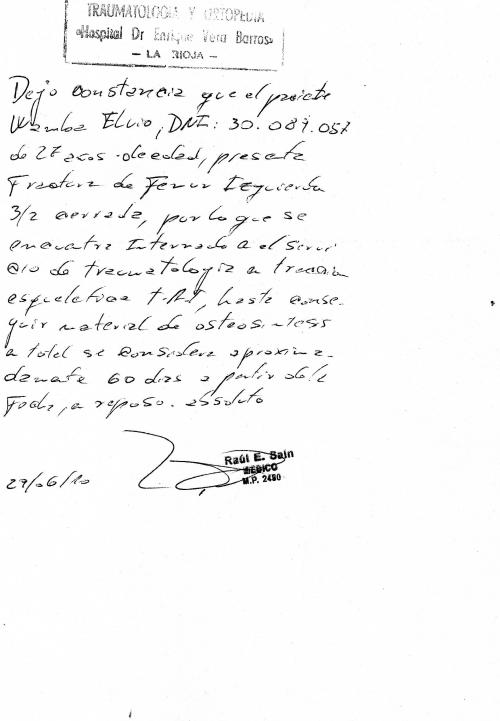 TRAUMATOLOGIA Y ORTOPEDIA
«Hospital Dr Enrique Vera Barros»
– LA RIOJA –
Dejo constancia que el paciente
Wamba Elvio, DNI: 30.089.057
de 27 años de edad, presenta
Fractura de Femur Izquierda
3/2 cerrada, por lo que se
encuentra Internado en el Servi
cio de traumatologia en traccion
esqueletica T.A.T, hasta conse-
guir material de osteosintesis
en total se considera aproxima-
damente 60 dias a partir de la
Fecha, en reposo absoluto
29/06/10
Raúl E. Sain
MEDICO
M.P. 2490